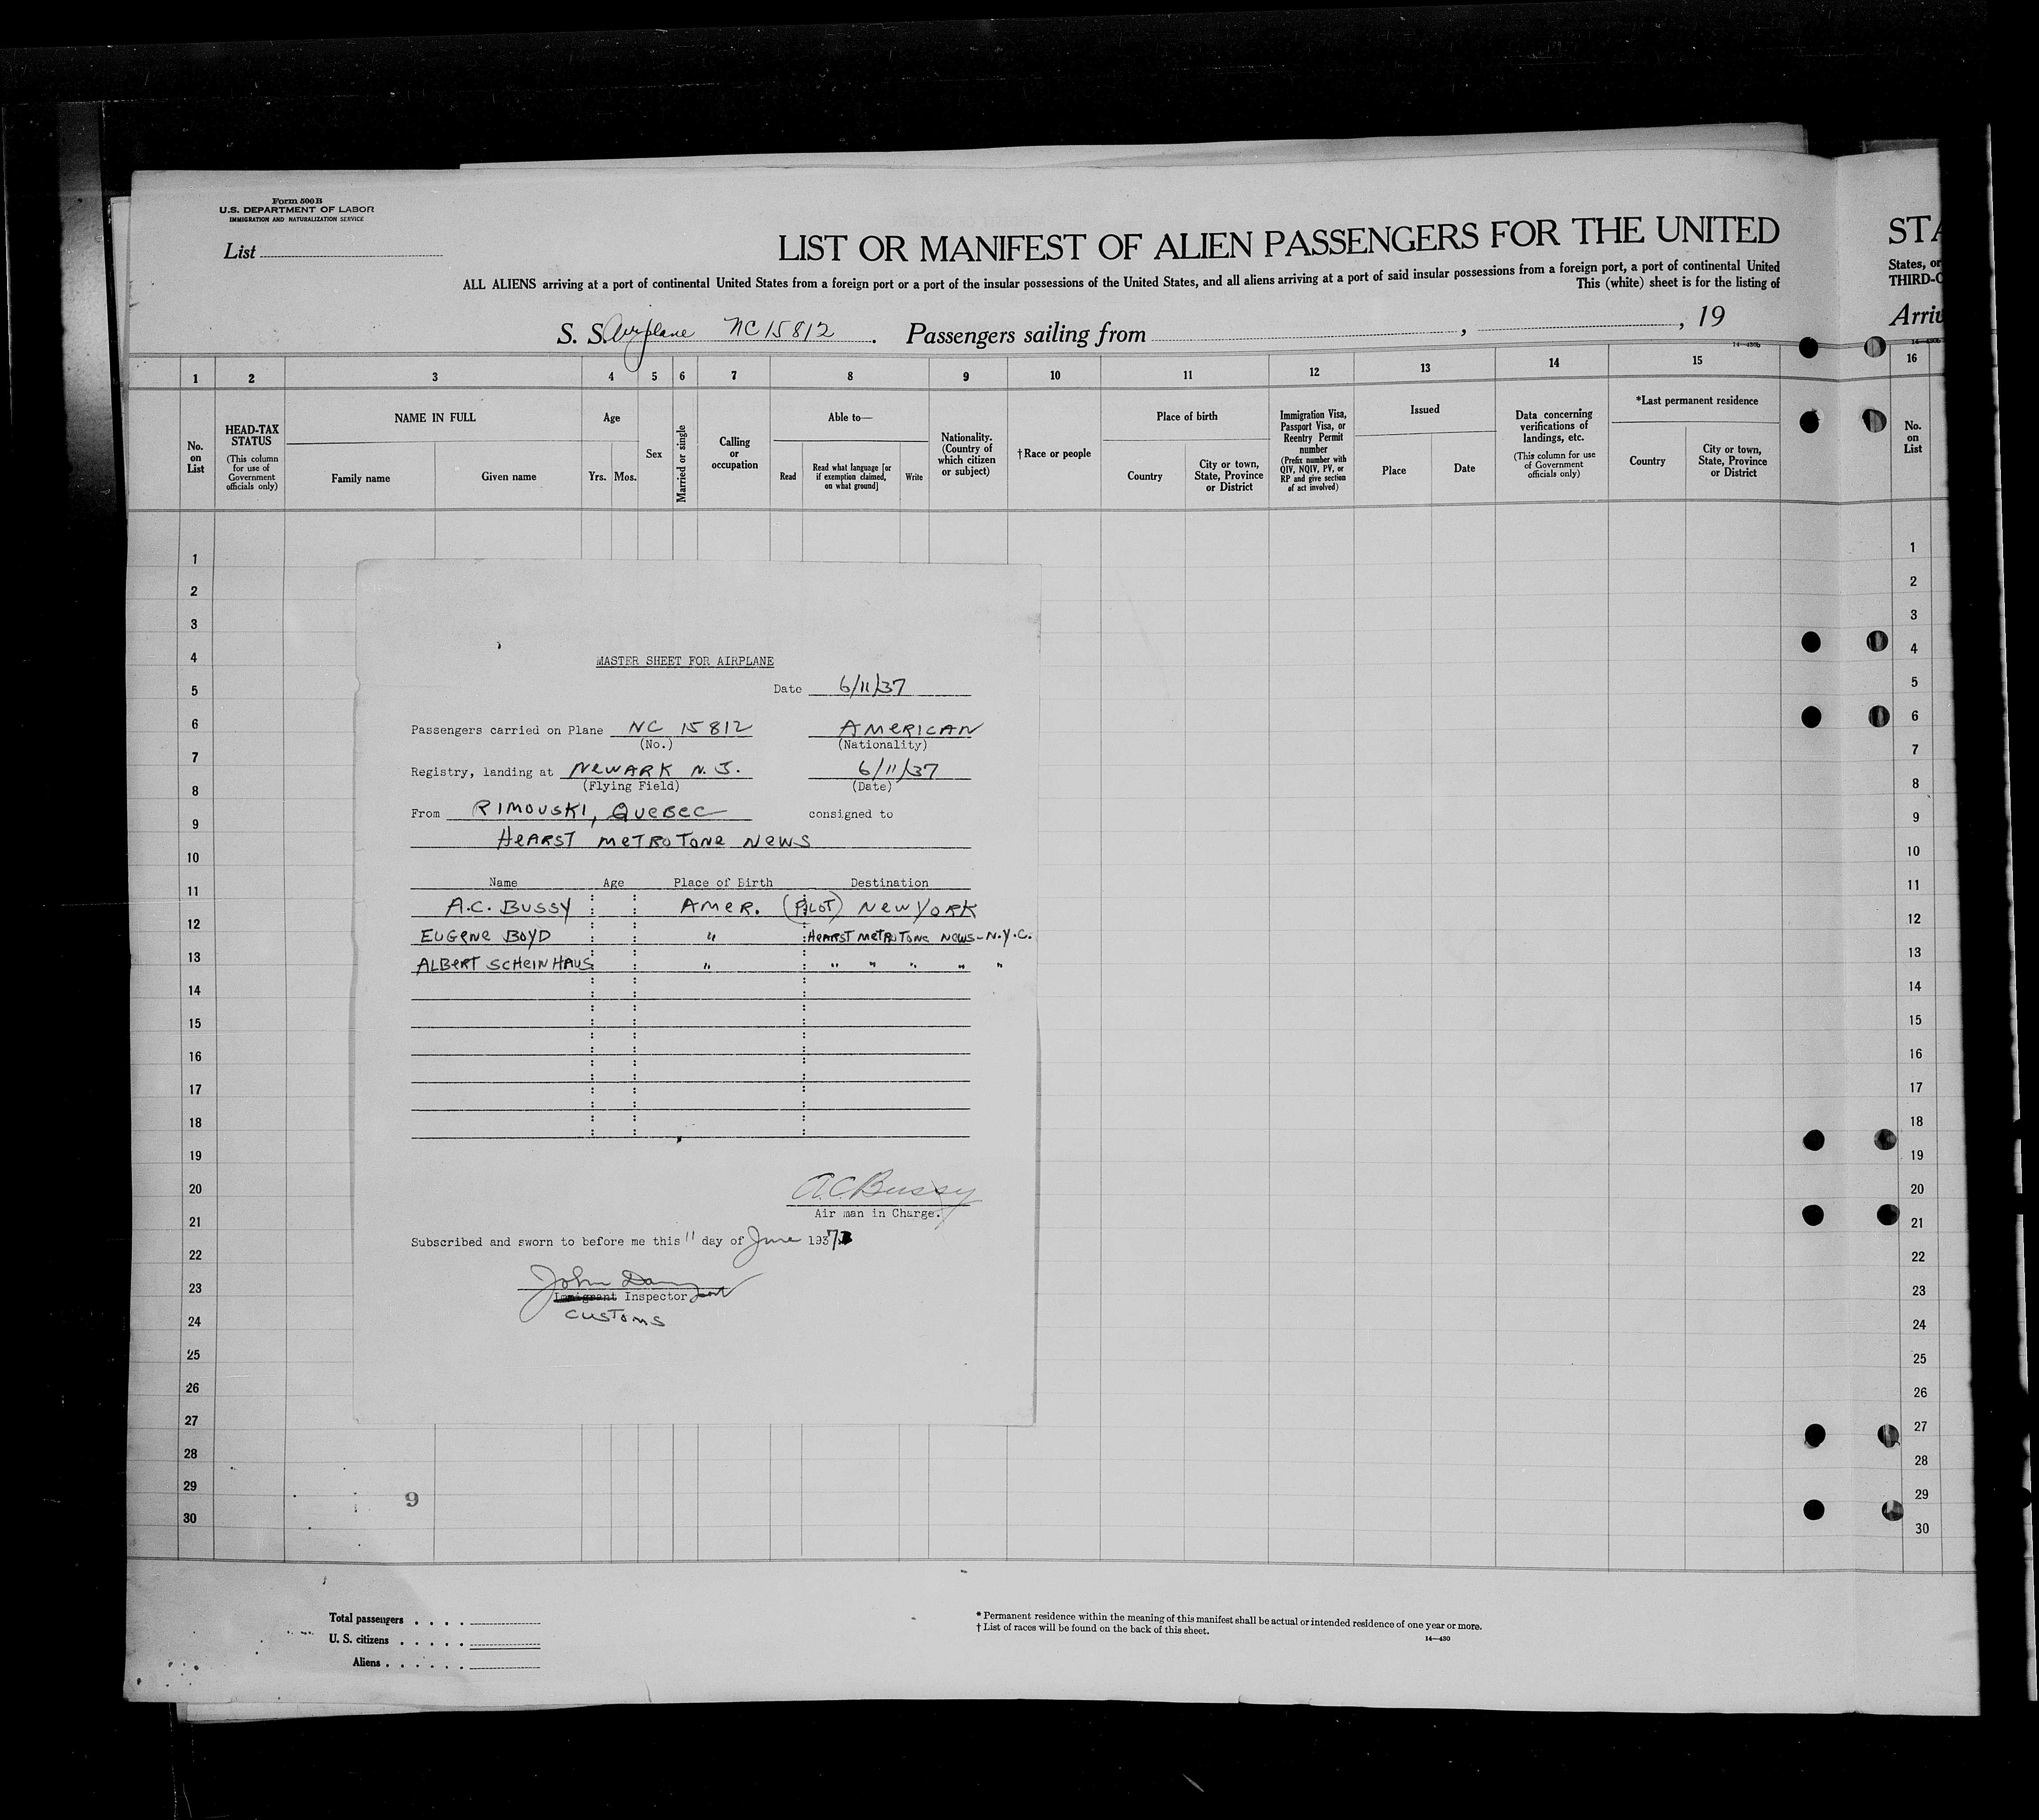 Form 500 B
U.S. DEPARTMENT OF LABOR
IMMIGRATION AND NATURALIZATION SERVICE
List
LIST OR MANIFEST OF ALIEN PASSENGERS FOR THE UNITED
STA
ALL ALIENS arriving at a port of continental United States from a foreign port or a port of the insular possessions of the United States, and all aliens arriving at a port of said insular possessions from a foreign port, a port of continental United
States, or
This (white) sheet is for the listing of
THIRD-C
S. S. Airplane NC 15812. Passengers sailing from , , 19
Arriv
14—430b
1 2 3 4 5 6 7 8 9 10 11 12 13 14 15 16
No. on List
HEAD-TAX STATUS
(This column for use of Government officials only)
NAME IN FULL
Family name
Given name
Age
Yrs. Mos.
Sex
Married or single
Calling or occupation
Able to—
Read
Read what language [or if exemption claimed, on what ground]
Write
Nationality. (Country of which citizen or subject)
† Race or people
Place of birth
Country
City or town, State, Province or District
Immigration Visa, Passport Visa, or Reentry Permit number
(Prefix number with QIV, NQIV, PV, or RP and give section of act involved)
Issued
Place
Date
Data concerning verifications of landings, etc.
(This column for use of Government officials only)
*Last permanent residence
Country
City or town, State, Province or District
No. on List
1 1
2 2
3 3
4 4
5 5
6 6
7 7
8 8
9 9
10 10
11 11
12 12
13 13
14 14
15 15
16 16
17 17
18 18
19 19
20 20
21 21
22 22
23 23
24 24
25 25
26 26
27 27
28 28
29 29
30 30
MASTER SHEET FOR AIRPLANE
Date 6/11/37
Passengers carried on Plane NC 15812 AMERICAN
(No.) (Nationality)
Registry, landing at NEWARK N. J. 6/11/37
(Flying Field) (Date)
From RIMOUSKI, QUEBEC consigned to
HEARST METROTONE NEWS
Name Age Place of Birth Destination
A.C. BUSSY AMER. (PILOT) NEW YORK
EUGENE BOYD " HEARST METROTONE NEWS - N.Y.C.
ALBERT SCHEINHAUS " " " " " "
A.C. Bussy
Air man in Charge.
Subscribed and sworn to before me this 11 day of June 1937
John
Immigrant Inspector
CUSTOMS
9
Total passengers . . . .
U. S. citizens . . . . .
Aliens . . . . . .
* Permanent residence within the meaning of this manifest shall be actual or intended residence of one year or more.
† List of races will be found on the back of this sheet.
14—430